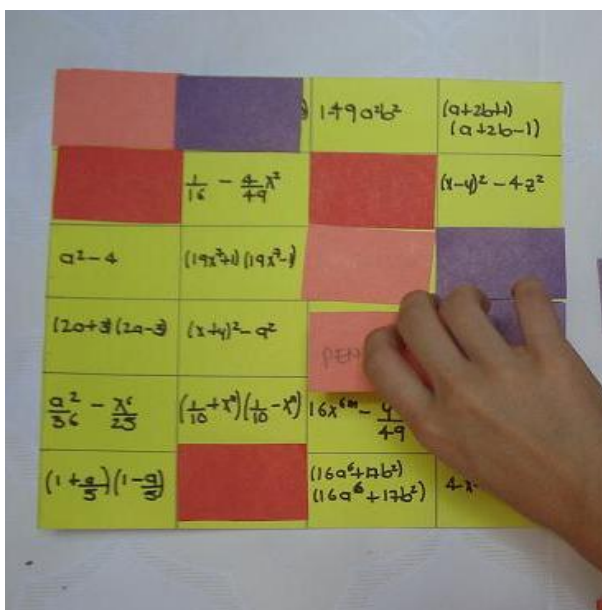 1-49a²b²
(a+2b+1)
(a+2b-1)
1/16 - 4/49 x²
(x-y)² - 4z²
a²-4
(19x²+1)(19x²-1)
(2a+3)(2a-3)
(x+y)²-a²
PEN
a²/36 - x⁶/25
(1/10+x⁴)(1/10-x⁴)
16x⁶ᵐ - y/49
(1+a/5)(1-a/5)
(16a⁶+17b²)
(16a⁶+17b²)
4-x